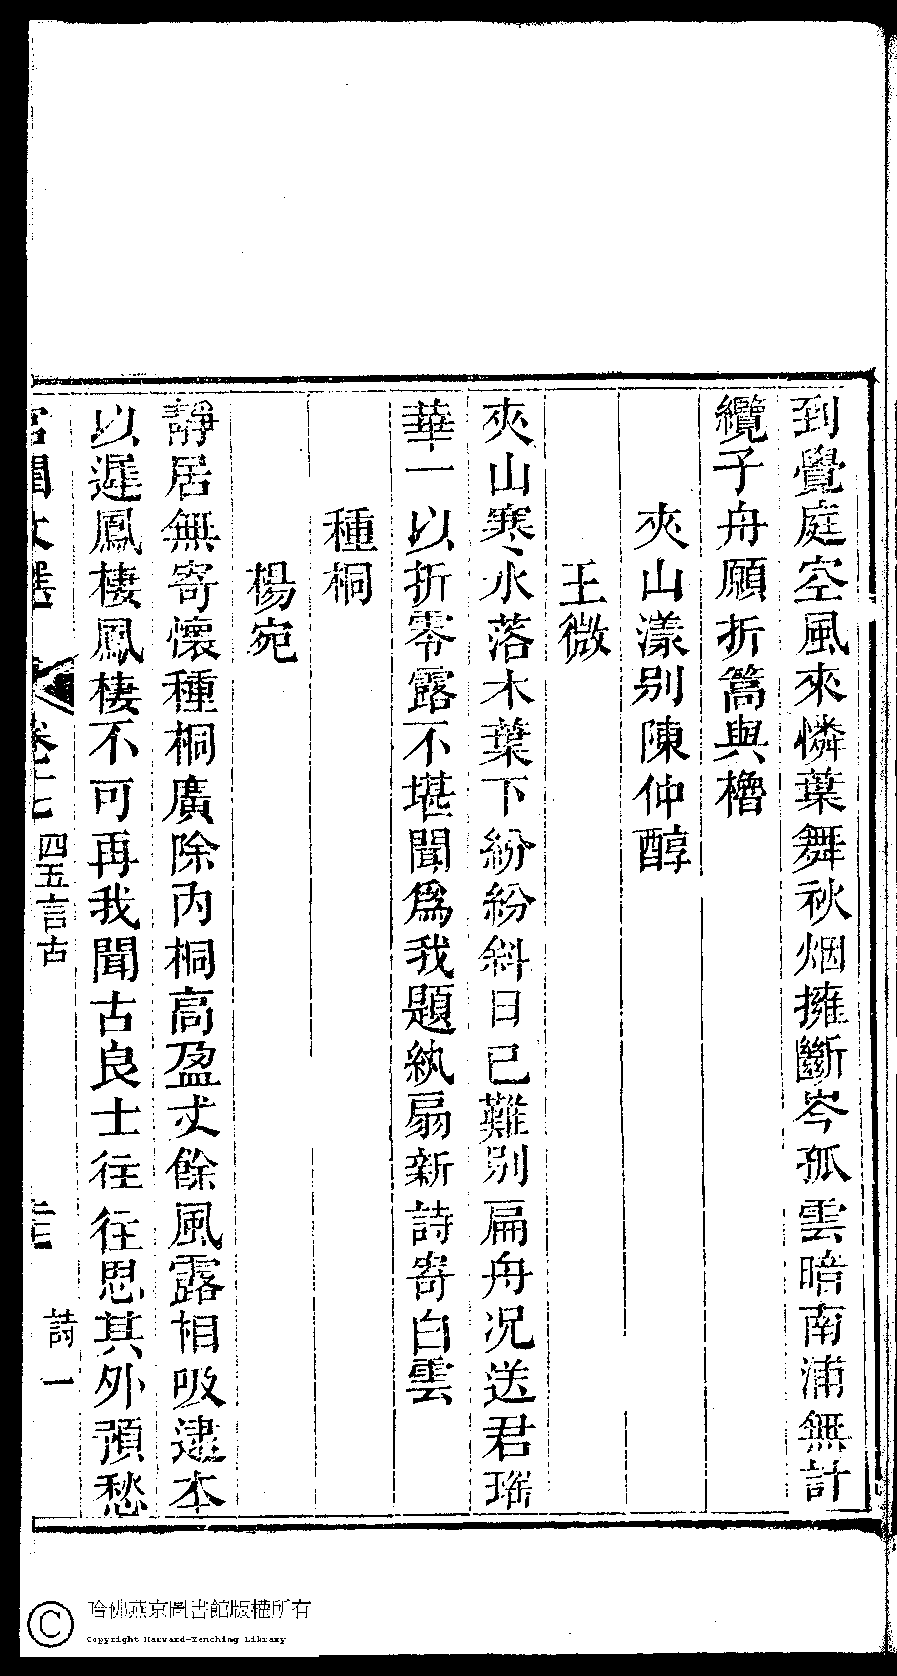 到覺庭空風來憐葉舞秋烟擁斷岑孤雲暗南浦無計
纜子舟願折篙與櫓
夾山漾别陳仲醇
王微
夾山寒水落木葉下紛紛斜日已難别扁舟况送君瑤
華一以折零露不堪聞爲我題紈扇新詩寄白雲
種桐
楊宛
靜居無寄懷種桐廣除内桐高盈丈餘風露相吸逮本
以遲鳳棲鳳棲不可再我聞古良士往往思其外預愁
宮閨文選
卷十七
四五言古
詩一
哈佛燕京圖書館版權所有
Copyright Harvard-Yenching Library